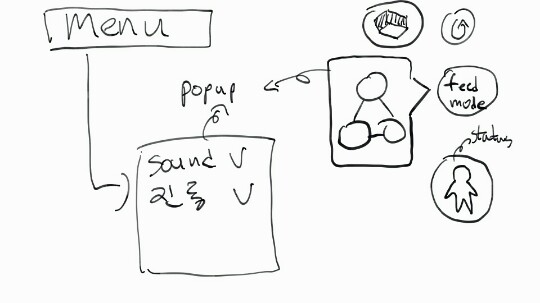 Menu
popup
sound V
진동 V
feed
mode
status